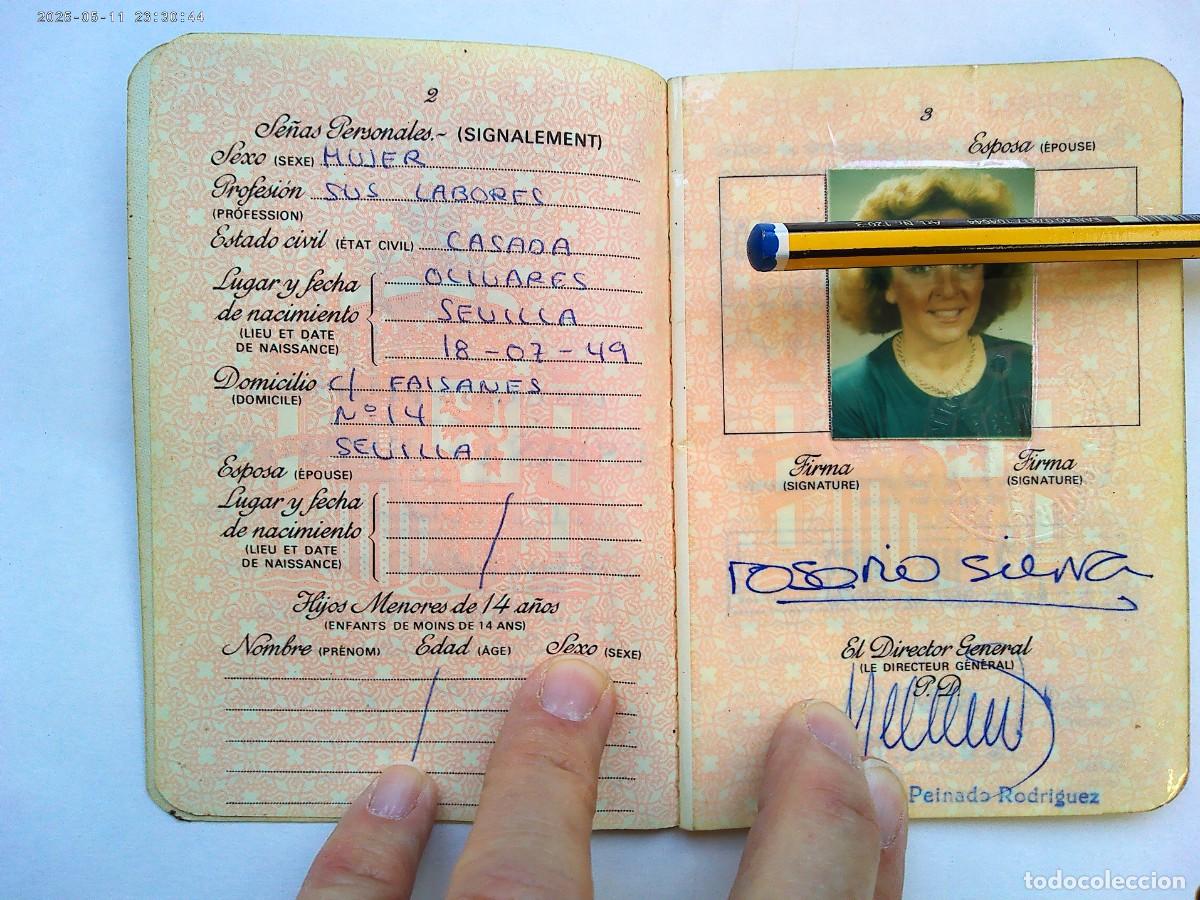 2025-05-11 23:30:44
2
Señas Personales.- (SIGNALEMENT)
Sexo (SEXE) MUJER
Profesión SUS LABORES
(PROFESSION)
Estado civil (ÉTAT CIVIL) CASADA
Lugar y fecha OLIVARES
de nacimiento SEVILLA
(LIEU ET DATE
DE NAISSANCE) 18-07-49
Domicilio C/ FAISANES
(DOMICILE)
Nº 14
SEVILLA
Esposa (ÉPOUSE)
Lugar y fecha
de nacimiento
(LIEU ET DATE
DE NAISSANCE)
Hijos Menores de 14 años
(ENFANTS DE MOINS DE 14 ANS)
Nombre (PRÉNOM) Edad (ÂGE) Sexo (SEXE)
3
Esposa (ÉPOUSE)
Firma Firma
(SIGNATURE) (SIGNATURE)
rosario sierra
El Director General
(LE DIRECTEUR GÉNÉRAL)
P.D.
Peinado Rodríguez
todocoleccion